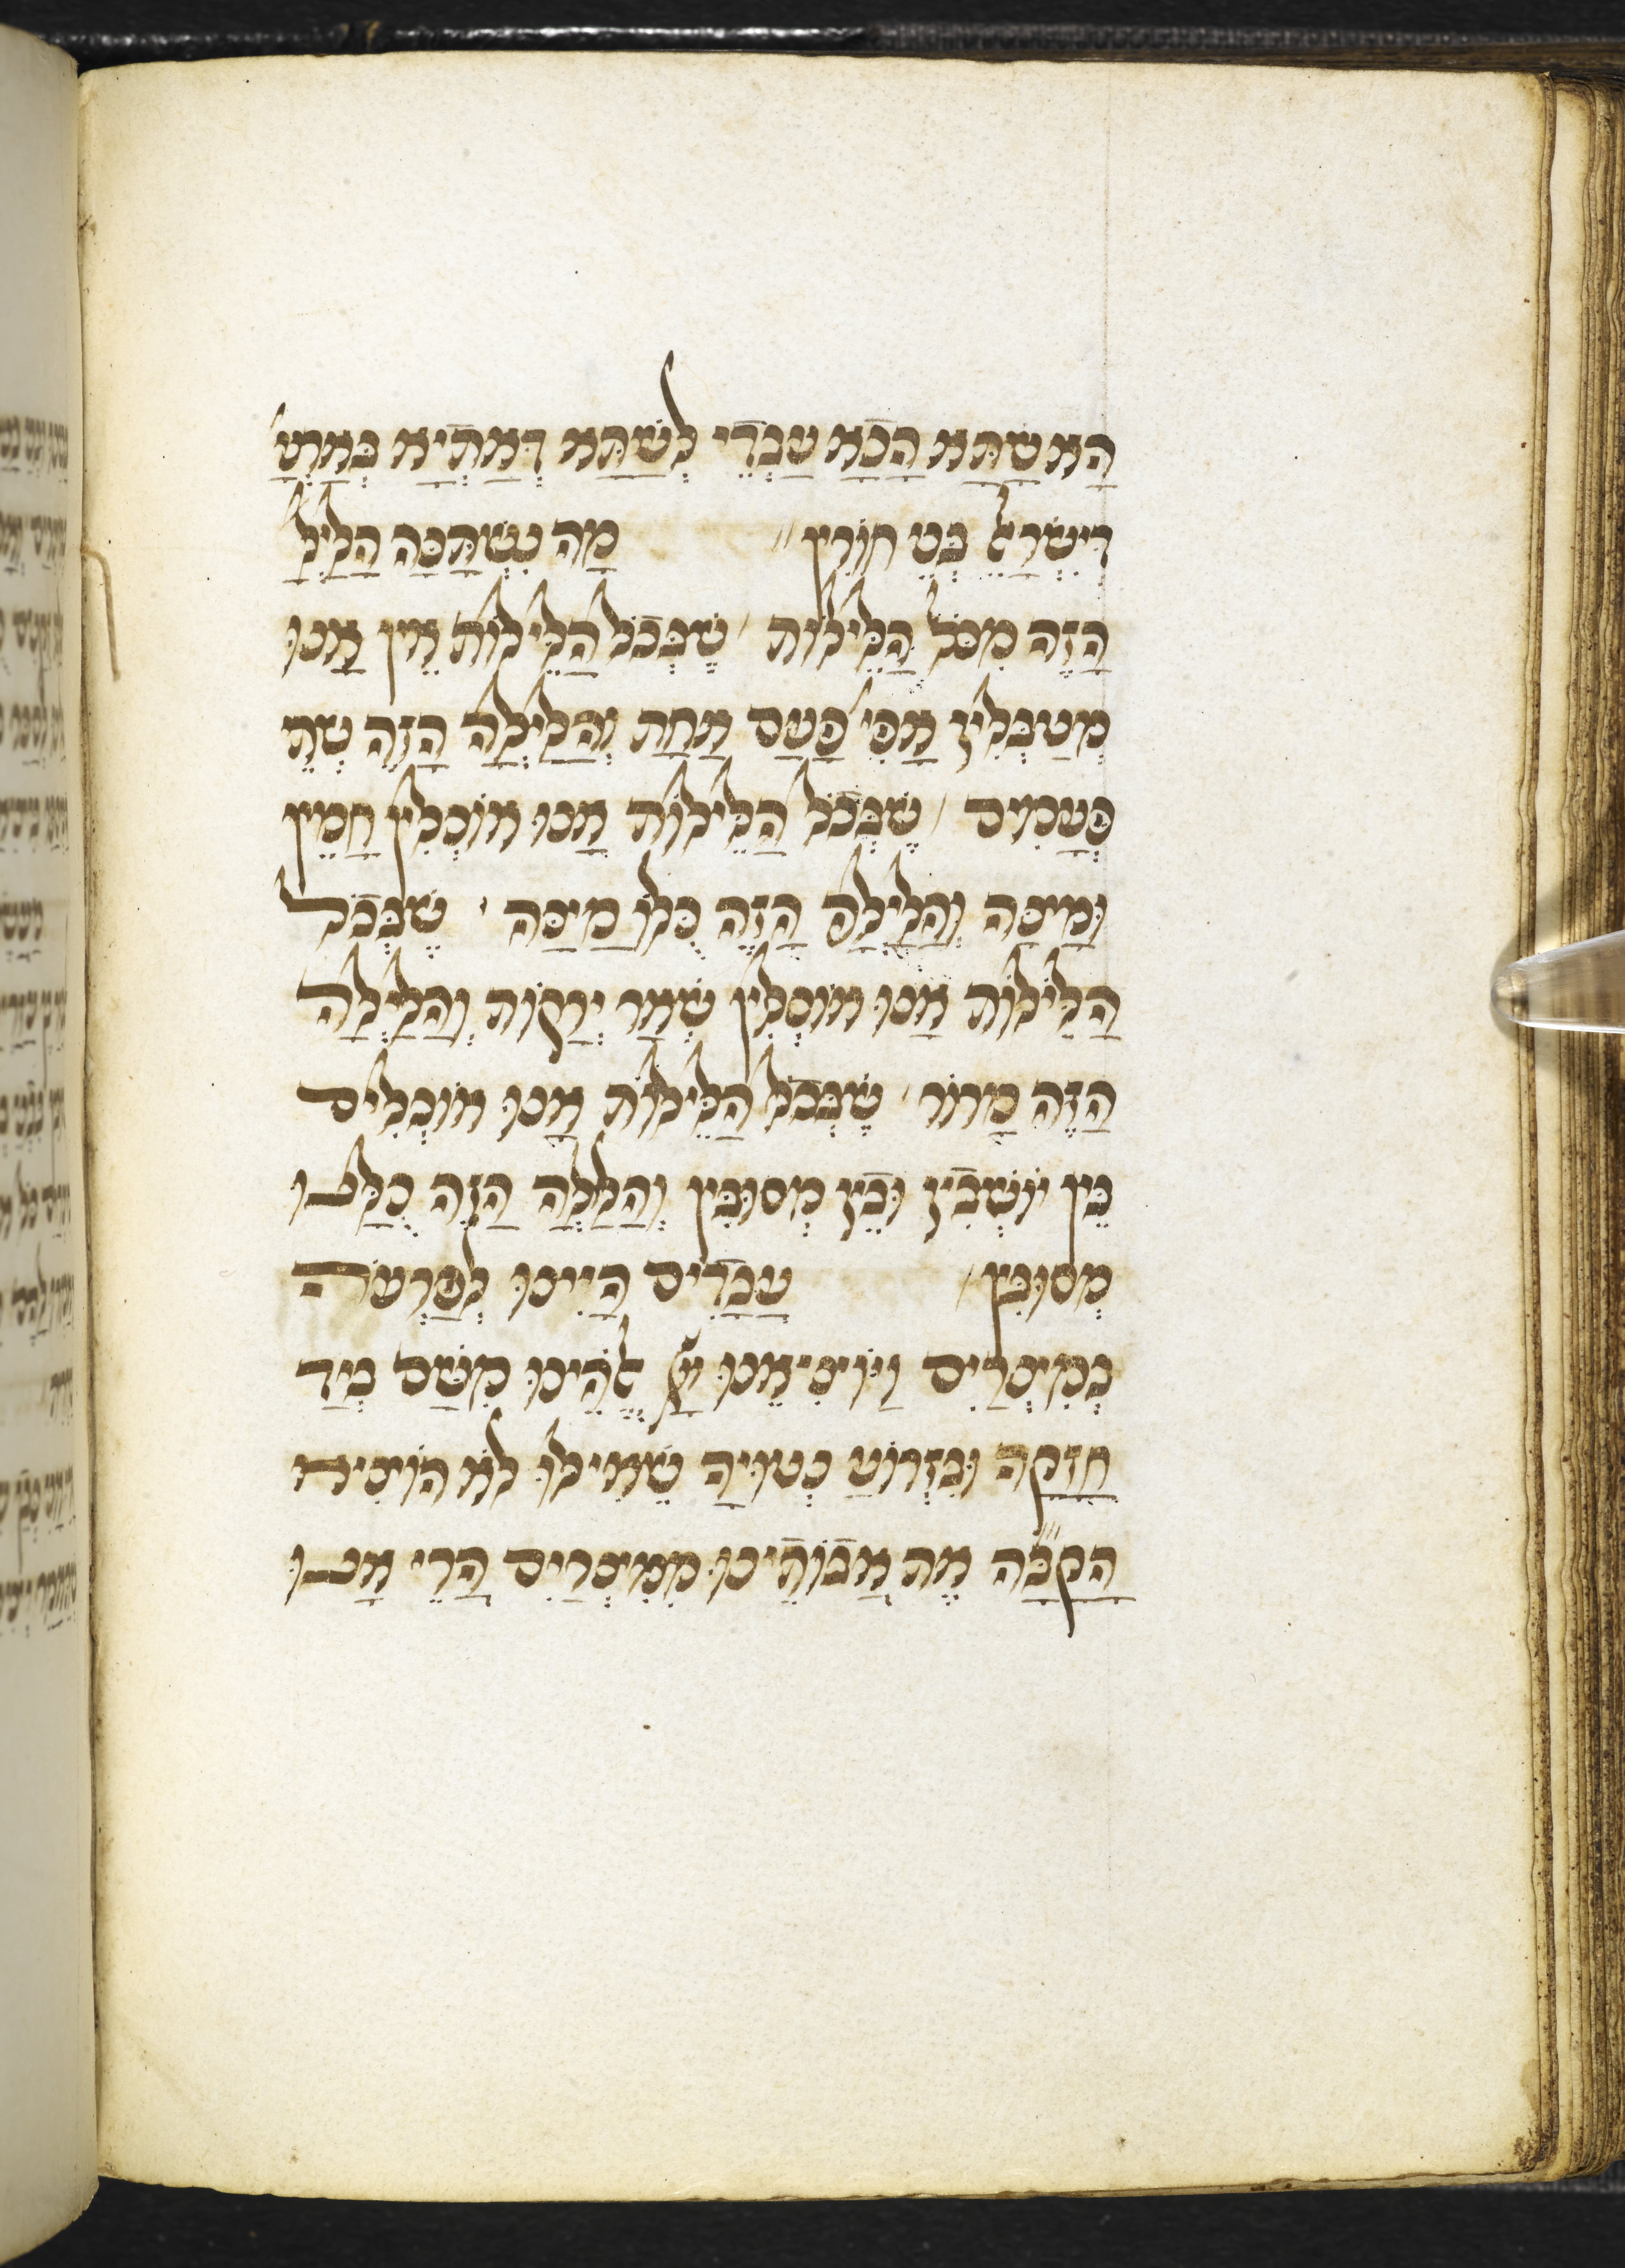 הָא שַׁתָּא הָכָא עַבְדֵי לְשַׁתָּא דְאַתְיָא בְּאַרְעָ'
דְיִשְׂרָאֵל בְּנֵי חוֹרִין מַה נִּשְׁתַּנָּה הַלַּיְלָ'
הַזֶּה מִכָּל הַלֵּילוֹת שֶׁבְּכָל הַלֵּילוֹת אֵין אָנוּ
מְטַבְּלִין אֲפִי' פַּעַם אַחַת וְהַלַּיְלָה הַזֶּה שְׁתֵּי
פְעָמִים שֶׁבְּכָל הַלֵּילוֹת אָנוּ אוֹכְלִין חָמֵץ
וּמַצָּה וְהַלַּיְלָה הַזֶּה כֻּלּוֹ מַצָּה שֶׁבְּכָל
הַלֵּילוֹת אָנוּ אוֹכְלִין שְׁאָר יְרָקוֹת וְהַלַּיְלָה
הַזֶּה מָרוֹר שֶׁבְּכָל הַלֵּילוֹת אָנוּ אוֹכְלִים
בֵּין יוֹשְׁבִין וּבֵין מְסוּבִּין וְהַלַּלְה הַזֶּה כֻּלָּנוּ
מְסוּבִּין עֲבָדִים הָיִינוּ לְפַרְעֹה
בְּמִצְרַיִם וַיּוֹצִיאֵנוּ יְיָ אֱלֹהֵינוּ מִשָּׁם בְּיַד
חֲזָקָה וּבִזְרוֹעַ נְטוּיָה שֶׁאִילוּ לֹא הוֹצִיא
הַקָבָּ"ה אֶת אֲבוֹתֵינוּ מִמִּצְרַיִם הֲרֵי אָנוּ